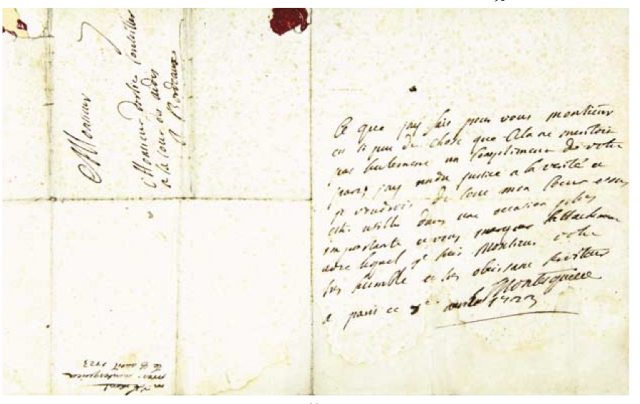 Monsieur
Monsieur Conseiller
a la cour des aides
a Bordeaux
Ce que jay fait pour vous monsieur
est si peu de chose que cela ne meritoit
pas seulement un compliment de votre
part, jay rendu justice a la verité et
je voudrois de tout mon coeur vous
estre utille dans une occasion plus
importante et vous marquer l'attachement
avec lequel je suis Monsieur votre
tres humble et tres obeissant serviteur
Montesquieu
a paris ce 1723
1723